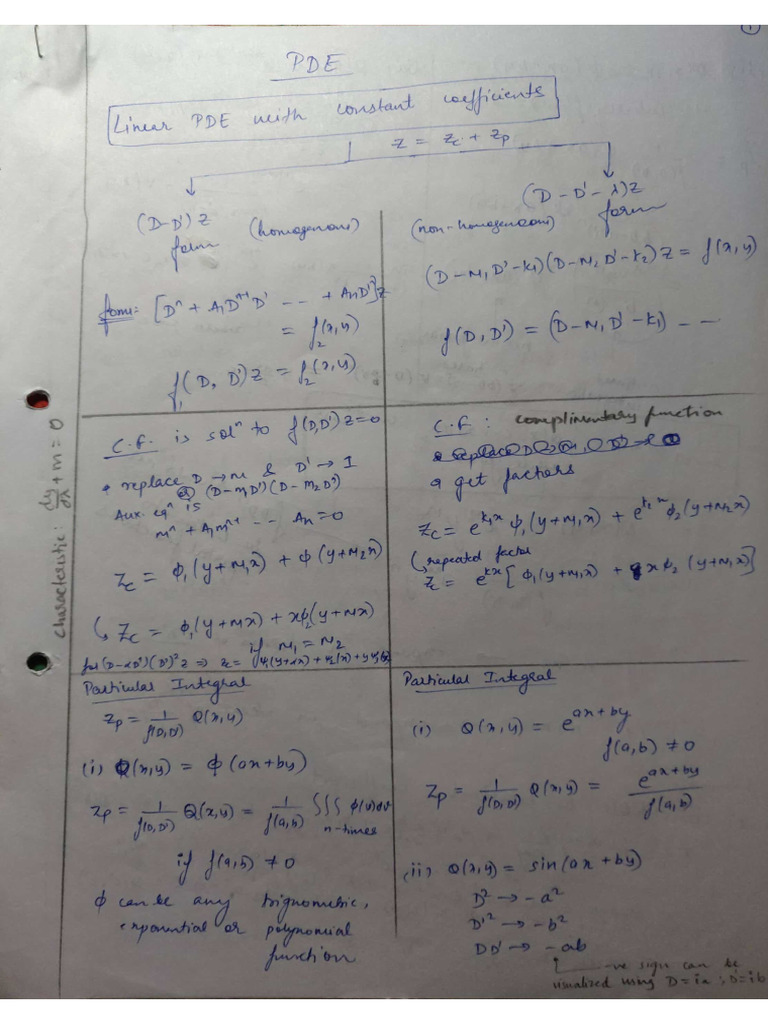 1
PDE
Linear PDE with constant coefficients
Z = Zc + Zp
(D-D')Z form (homogenous)
form:- [Dⁿ + A₁Dⁿ⁻¹D' -- -- + AnD'ⁿ]Z
= f₂(x,y)
f₁(D, D')Z = f₂(x,y)
(D - D' - λ)Z form
(non-homogenous)
(D - m₁D' - k₁)(D - m₂D' - k₂)Z = f(x,y)
f(D, D') = (D - m₁D' - k₁) -- --
characteristic: dy/dx + m = 0
C.F. is solⁿ to f(D,D')Z=0
• replace D → m & D' → 1
(D-m₁D')(D-m₂D')
Aux. eqⁿ is
mⁿ + A₁mⁿ⁻¹ -- -- An = 0
Zc = ϕ₁(y+m₁x) + ϕ(y+m₂x)
↳ Zc = ϕ₁(y+mx) + xϕ₂(y+mx)
if m₁ = m₂
for (D-αD')(D')²Z ⇒ Zc = ψ₁(y+αx) + ψ₂(x) + yψ₃(x)
C.F : complimentary function
• get factors
Zc = e^(k₁x) ϕ₁(y+m₁x) + e^(k₂x) ϕ₂(y+m₂x)
↳ repeated factor
Zc = e^(kx) [ϕ₁(y+m₁x) + xϕ₂(y+m₁x)]
Particular Integral
Zp = 1/f(D,D') Q(x,y)
(i) Q(x,y) = ϕ(ax+by)
Zp = 1/f(D,D') Q(x,y) = 1/f(a,b) ∫∫∫ ϕ(u)du
n-times
if f(a,b) ≠ 0
ϕ can be any trignometric,
exponential or polynomial
function
Particular Integral
(i) Q(x,y) = e^(ax+by)
f(a,b) ≠ 0
Zp = 1/f(D,D') Q(x,y) = e^(ax+by)/f(a,b)
(ii) Q(x,y) = sin(ax+by)
D² → -a²
D'² → -b²
DD' → -ab
-ve sign can be
visualized using D=ia ; D'=ib